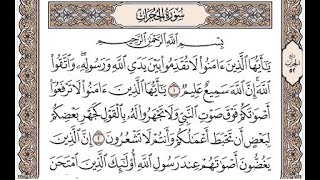 سُورَةُ الحُجُرَاتِ
بِسْمِ اللَّهِ الرَّحْمَٰنِ الرَّحِيمِ
يَا أَيُّهَا الَّذِينَ ءَامَنُوا لَا تُقَدِّمُوا بَيْنَ يَدَيِ اللَّهِ وَرَسُولِهِ ۖ وَاتَّقُوا
اللَّهَ ۚ إِنَّ اللَّهَ سَمِيعٌ عَلِيمٌ ١ يَا أَيُّهَا الَّذِينَ ءَامَنُوا لَا تَرْفَعُوا
أَصْوَاتَكُمْ فَوْقَ صَوْتِ النَّبِيِّ وَلَا تَجْهَرُوا لَهُ بِالْقَوْلِ كَجَهْرِ بَعْضِكُمْ
لِبَعْضٍ أَن تَحْبَطَ أَعْمَالُكُمْ وَأَنتُمْ لَا تَشْعُرُونَ ٢ إِنَّ الَّذِينَ
يَغُضُّونَ أَصْوَاتَهُمْ عِندَ رَسُولِ اللَّهِ أُولَٰئِكَ الَّذِينَ امْتَحَنَ